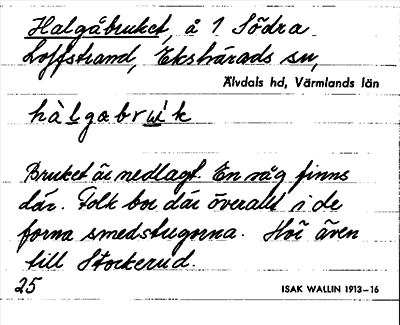 Halgåbruket, å 1 Södra
Loffstrand, Ekshärads sn,
Älvdals hd, Värmlands län
hàlgabru̇k
Bruket är nedlagt. En såg finns
där. Folk bor där överallt i de
forna smedstugorna. Hör även
till Stockerud.
25
ISAK WALLIN 1913–16